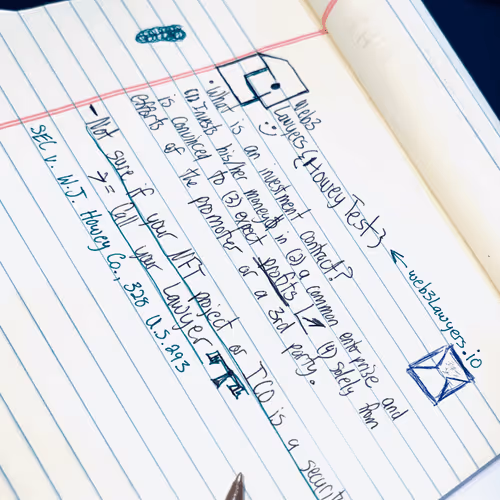 web3
Lawyers { Howey Test } ← web3lawyers.io
• What is an investment contract?
(1) Invests his/her money in (2) a common enterprize and
is convinced to (3) expect profits (4) solely from
efforts of the promoter or a 3rd party.
- Not sure if your NFT project or ICO is a securit
Call your Lawyer
SEC v. W.J. Howey Co., 328 U.S. 293